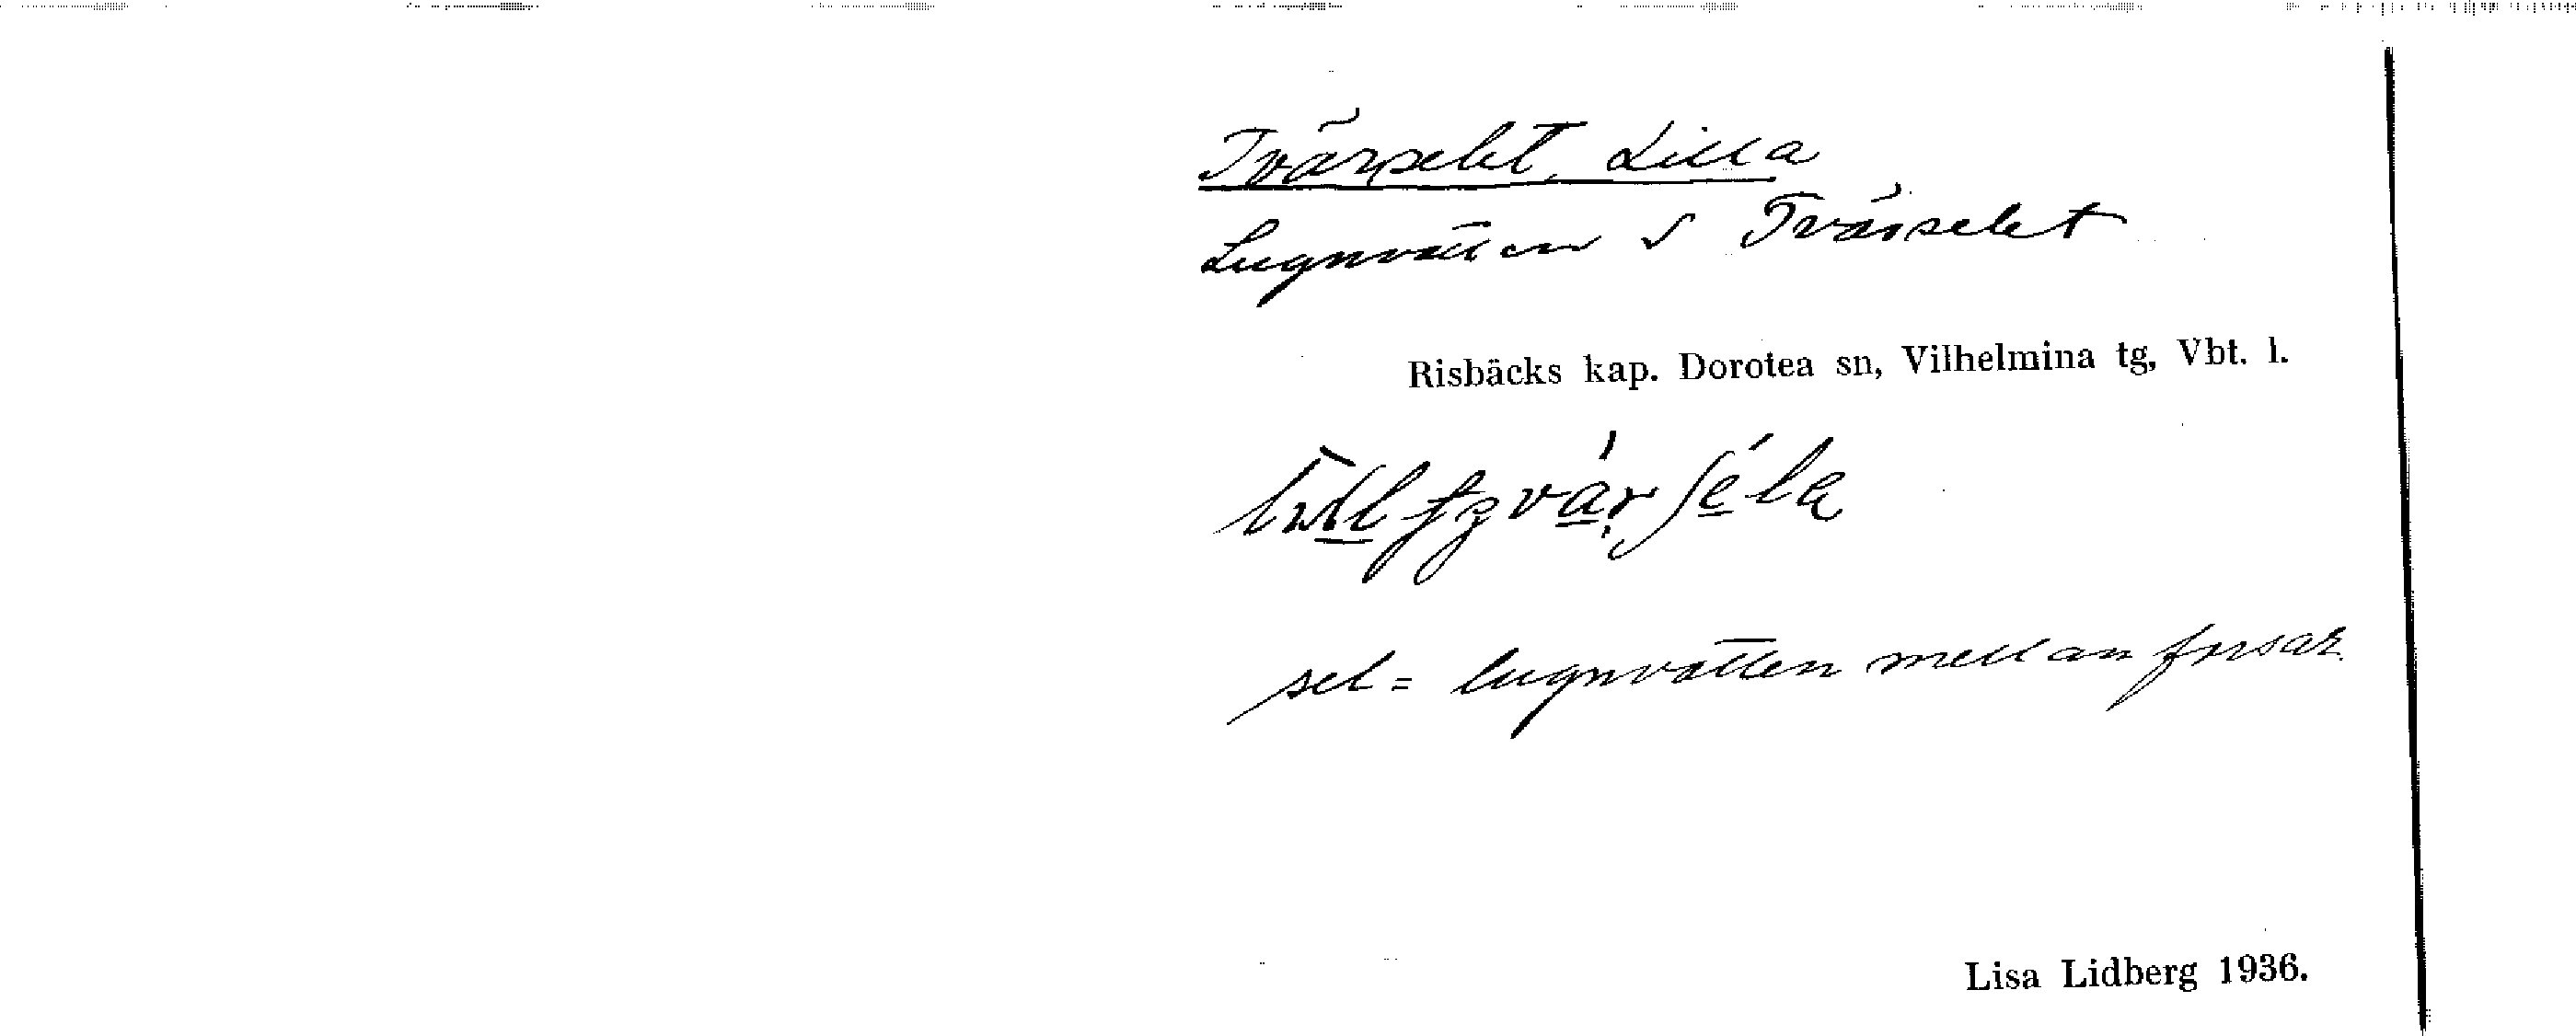 Tvärselet, Lilla
Lugnvatten i Tvärselet
Risbäcks kap. Dorotea sn, Vilhelmina tg, Vbt. l.
sel = lugnvatten mellan forsar.
Lisa Lidberg 1936.